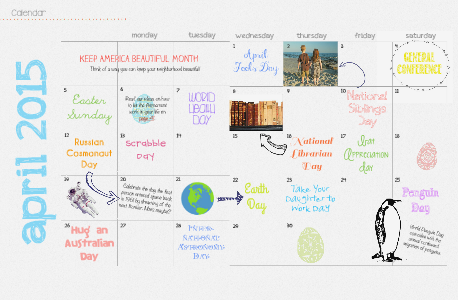 Calendar
april 2015
monday tuesday wednesday thursday friday saturday
KEEP AMERICA BEAUTIFUL MONTH
Think of a way you can keep your neighborhood beautiful!
1 2 3 4
April
Fools Day
GENERAL
CONFERENCE
5 6 7 8 9 10 11
Easter
Sunday
Read our ideas on how
to let the Atonement
work in your life on
WORLD
HEALTH
DAY
National
Siblings
Day
12 13 14 15 16 17 18
Russian
Cosmonaut
Day
Scrabble
Day
National
Librarian
Day
Bat
Appreciation
Day
19 20 21 22 23 24 25
Celebrate the day the first
person entered space back
in 1961 by dreaming of the
next Russian Mars maybe?
Earth
Day
Take Your
Daughter to
Work Day
Penguin
Day
26 27 28 29 30
Hug an
Australian
Day
World Penguin Day
coincides with the
annual northward
migration of penguins.